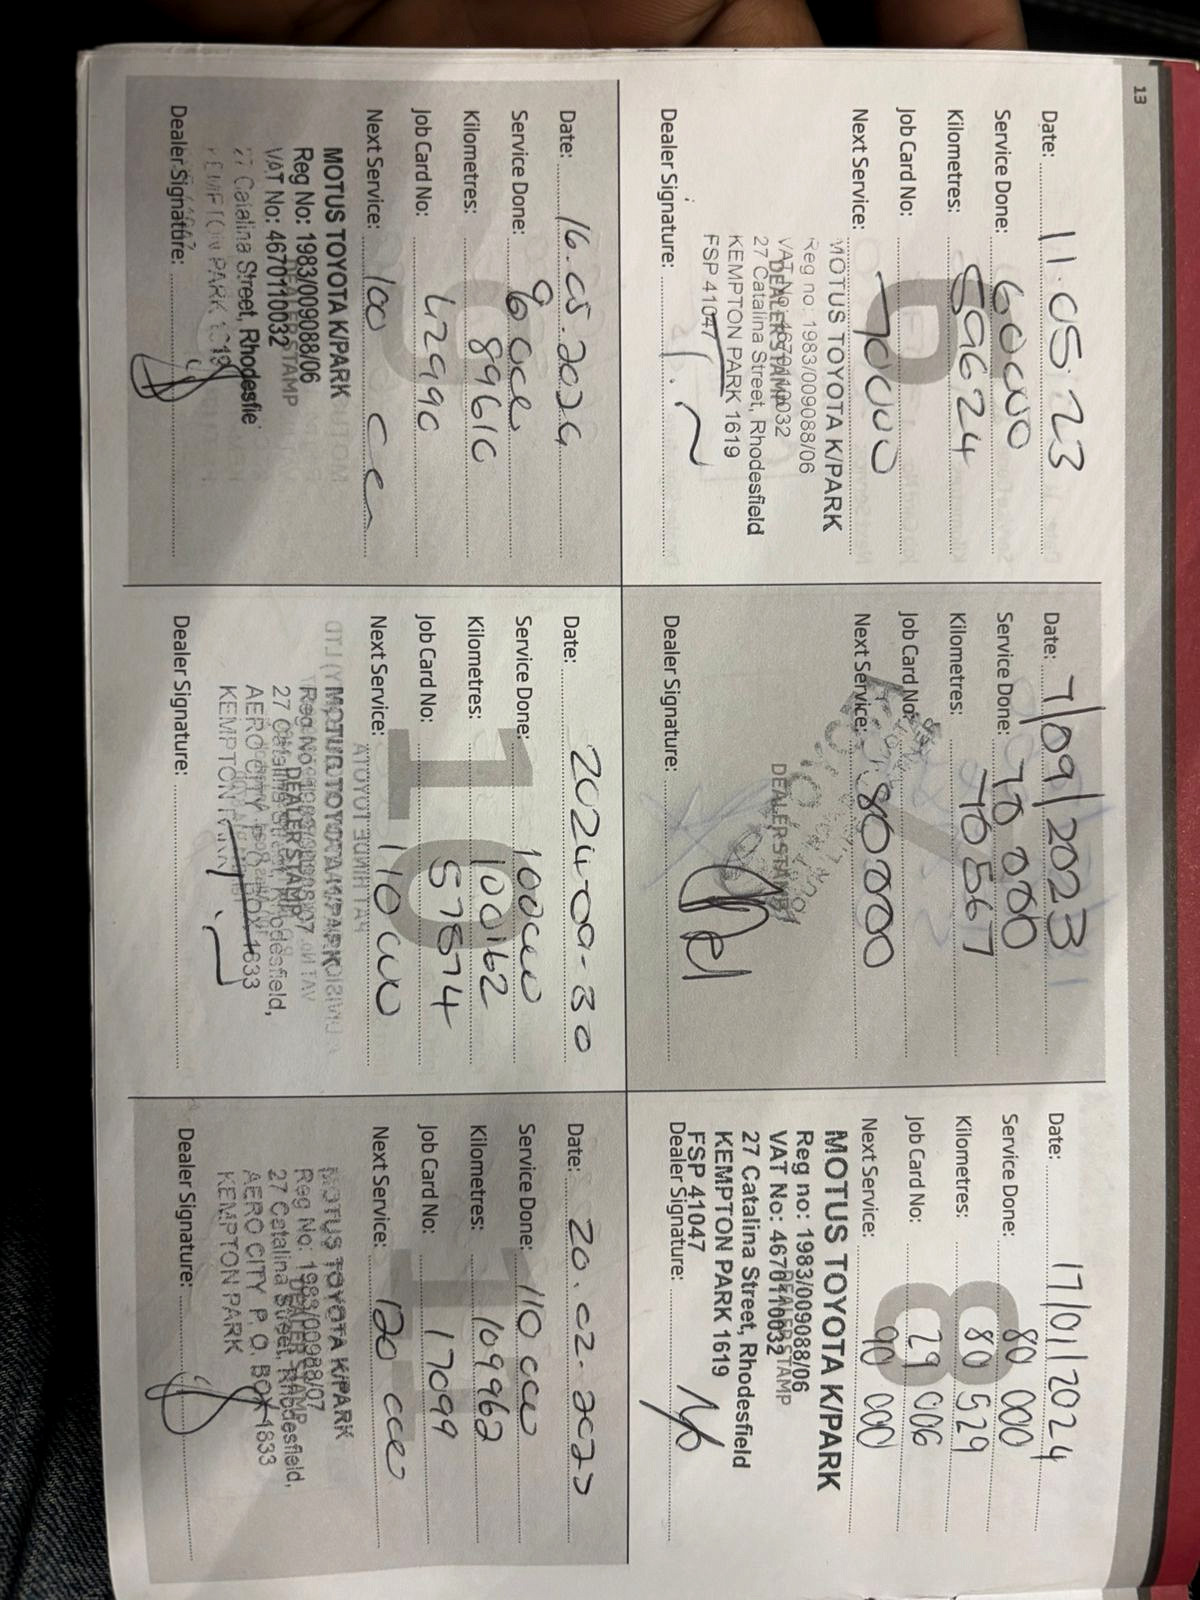 13
Date: 11.05.23
Service Done: 60000
Kilometres: 59624
Job Card No:
Next Service: 70000
6
MOTUS TOYOTA K/PARK
Reg no: 1983/009088/06
VAT No: 4670110032
DEALER STAMP
27 Catalina Street, Rhodesfield
KEMPTON PARK 1619
FSP 41047
Dealer Signature:
Date: 7/09/2023
Service Done: 70 000
Kilometres: 70567
Job Card No:
Next Service: 80000
7
DEALER STAMP
Dealer Signature:
Date: 17/01/2024
Service Done: 80 000
Kilometres: 80 529
Job Card No: 29 006
Next Service: 90 000
8
MOTUS TOYOTA K/PARK
Reg no: 1983/009088/06
VAT No: 4670110032
DEALER STAMP
27 Catalina Street, Rhodesfield
KEMPTON PARK 1619
FSP 41047
Dealer Signature:
Date: 16.05.2024
Service Done:
Kilometres: 89610
Job Card No: 42990
Next Service: 100
9
MOTUS TOYOTA K/PARK
Reg No: 1983/009088/06
DEALER STAMP
VAT No: 4670110032
27 Catalina Street, Rhodesfie
KEMPTON PARK 1619
Dealer Signature:
Date: 2024-09-30
Service Done: 100000
Kilometres: 100162
Job Card No: 57574
Next Service: 110000
10
MOTUS TOYOTA K/PARK
DEALER STAMP
27 Catalina Street, Rhodesfield,
AERO CITY P.O. BOX 1833
KEMPTON PARK
Dealer Signature:
Date: 20.02.2025
Service Done: 110 000
Kilometres: 109962
Job Card No: 17099
Next Service: 120 000
11
MOTUS TOYOTA K/PARK
Reg No: 1983/00988/07
DEALER STAMP
27 Catalina Street, Rhodesfield,
AERO CITY P. O. BOX 1833
KEMPTON PARK
Dealer Signature: